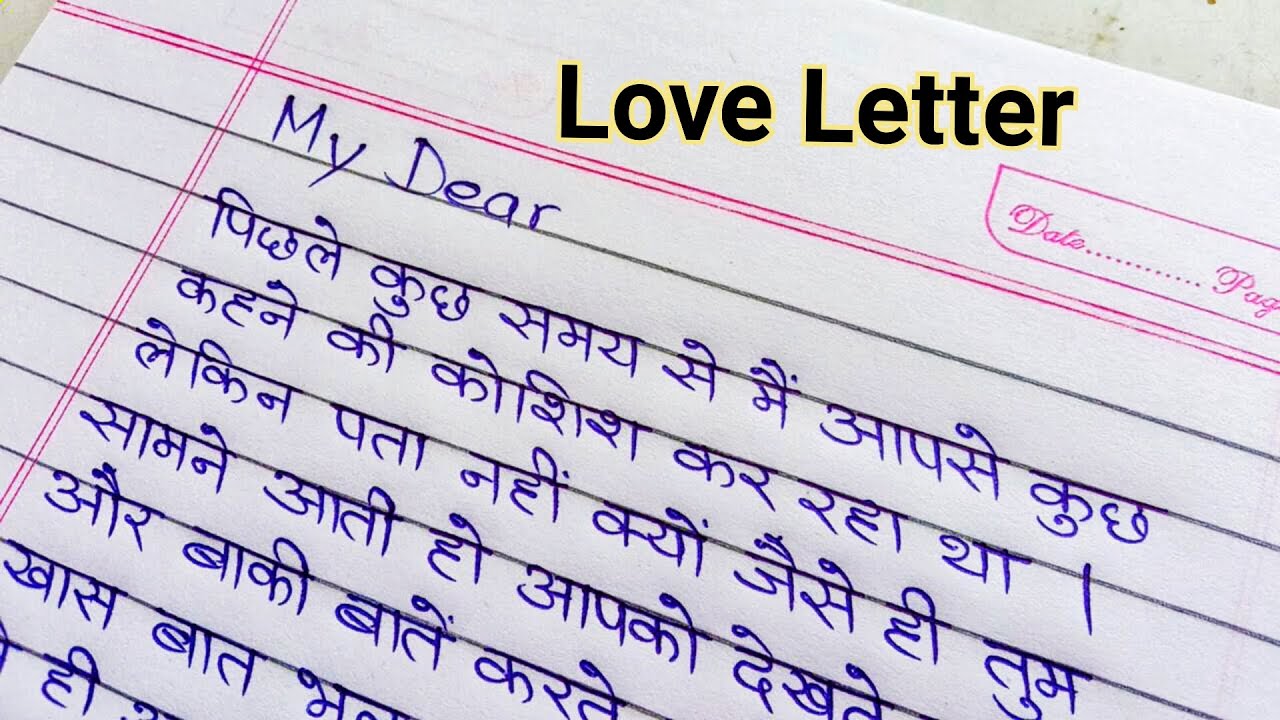 Love Letter
Date............ Pag
My Dear
पिछले कुछ समय से मैं आपसे कुछ
कहने की कोशिश कर रहा था ।
लेकिन पता नहीं क्यों जैसे ही तुम
सामने आती हो आपको देखते
और बाकी बातें करते
खास बात
ही